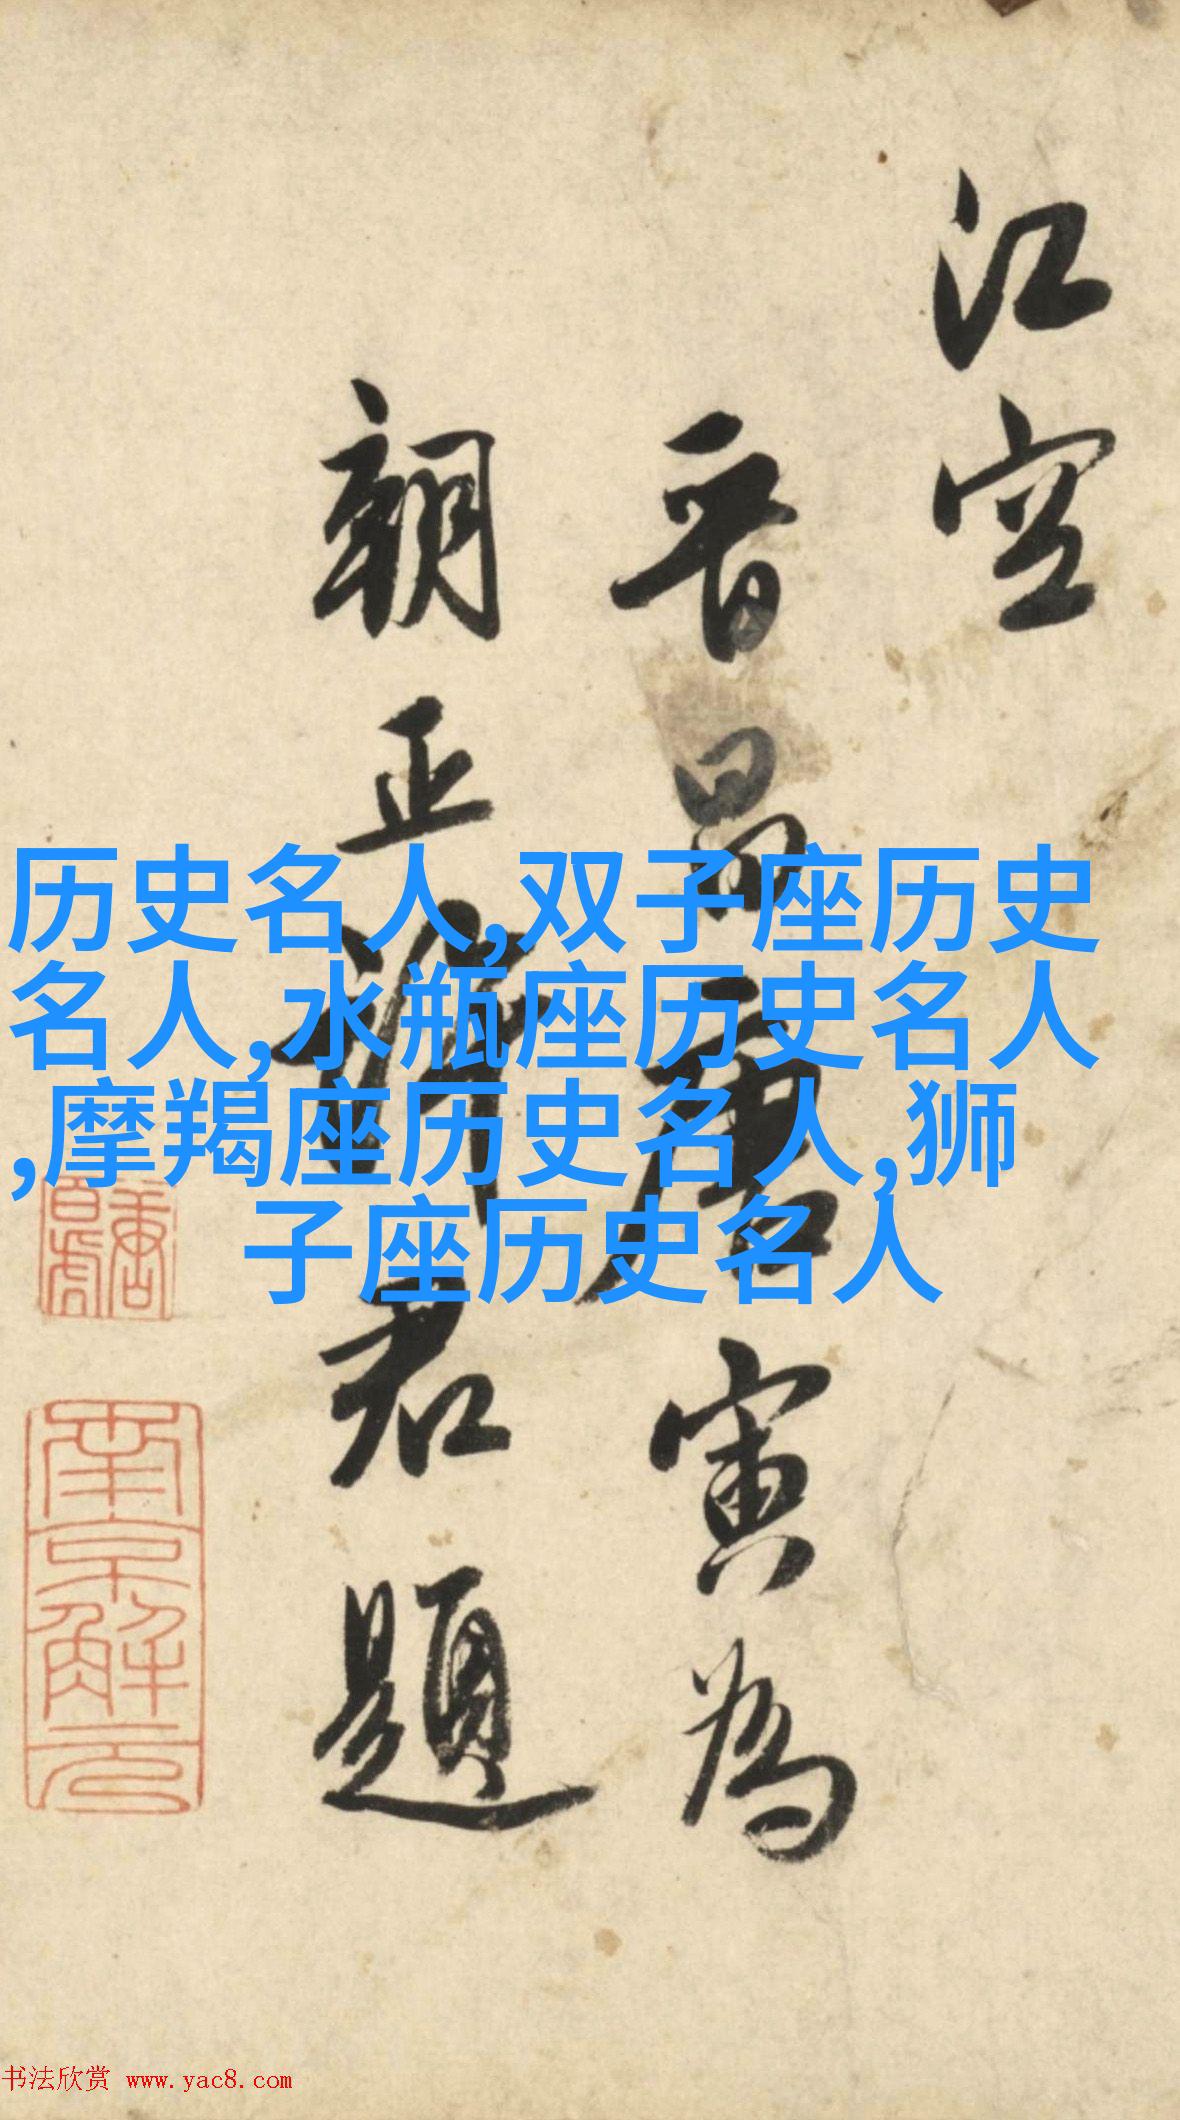 江空
晋昌唐寅为
朝正
君题
历史名人,双子座历史
名人,水瓶座历史名人
,摩羯座历史名人,狮
子座历史名人
南京解元
书法欣赏 www.yac8.com